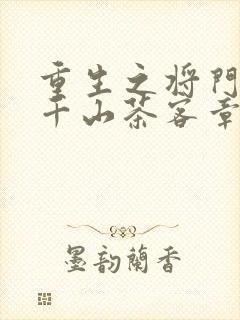 重生之将门
千山茶客章
墨韵蘭香